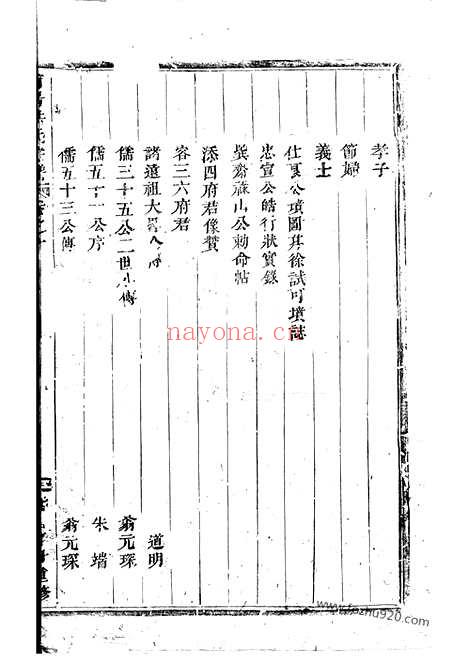 孝子
節婦
義士
仕夏公墳圖真徐試可墳誌
忠宣公皓行狀實錄
巽齋祿山公勅命帖
添四府君像贊
容三六府君
諸遠祖大 道明
儒三十五公二世小傳 翁元琛
儒五十一公序 朱端
儒五十三公傳 翁元琛
重修
nayona.cn
www.fozhu920.com